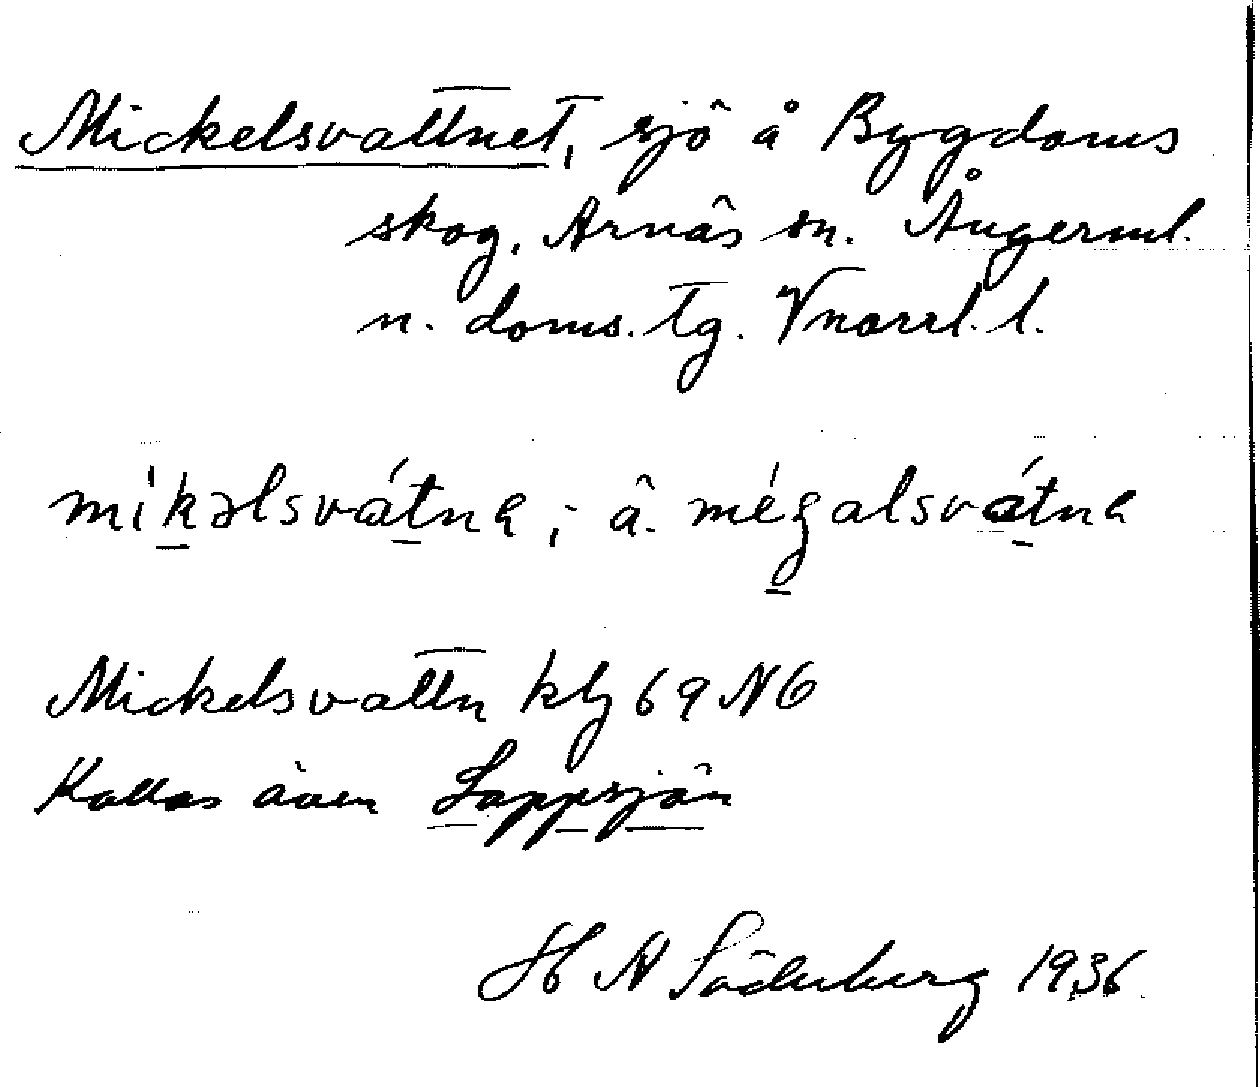 Mickelsvattnet, sjö å Bygdoms
skog, Arnäs sn. Ångerml.
n. doms. tg. Vnorrl. l.
míkəlsvátnɐ, ä. mégalsvátnɐ
Mickelsvattn kbl 69 NO
Kallas även Lappsjön
H A Söderberg 1936